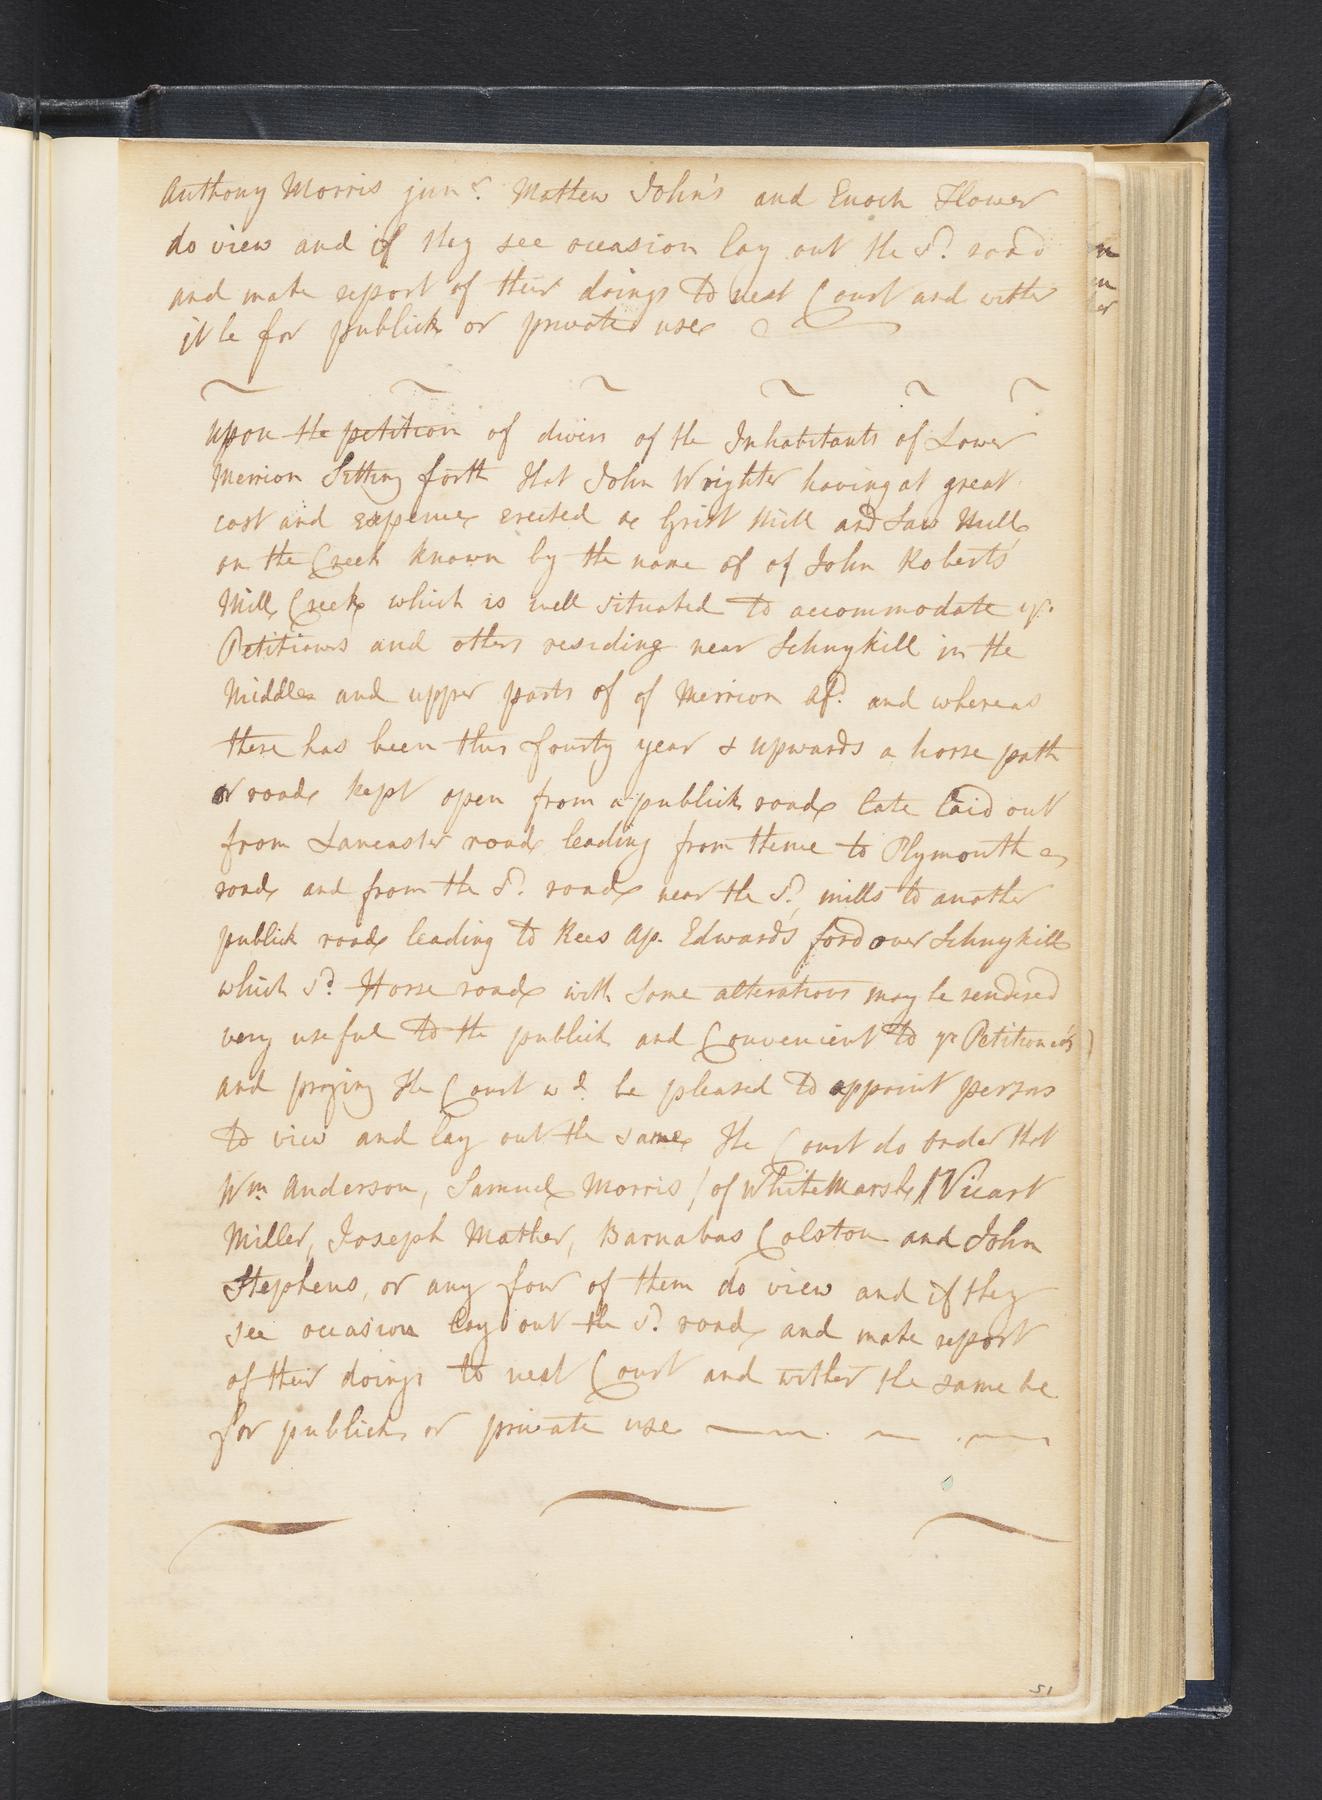 Anthony Morris junr. Mathew John's and Enoch Flower
do view and if they see occasion lay out the sd. road
and make report of their doings to next Court and wither
it be for publick or private use
upon the petition of divers of the Inhabitants of Lower
Merrion Setting forth that John Wrighter having at great
cost and expence erected a Grist Mill and Saw Mill
on the Creek known by the name of of John Roberts'
Mill Creek which is well situated to accommodate yr.
Petitioners and others residing near Schuykill in the
Middle and upper parts of of Merrion afd. and whereas
there has been this fourty year & upwards a horse path
or road kept open from a publick road late laid out
from Lancaster road leading from thence to Plymouth
road and from the sd. road near the sd. mills to another
publick road leading to Rees Ap. Edward's ford over Schuykill
which sd. Horse road with some alterations may be rendered
very useful to the publick and Convenient to yr Petitioners
and praying the Court wd. be pleased to appoint persons
to view and lay out the same The Court do order that
Wm. Anderson, Samuel Morris / of WhiteMarsh / Vicart
Miller, Joseph Mather, Barnabas Colston and John
Stephens, or any four of them do view and if they
see occasion lay out the sd. road and make report
of their doings to next Court and wither the same be
for publick or private use
51